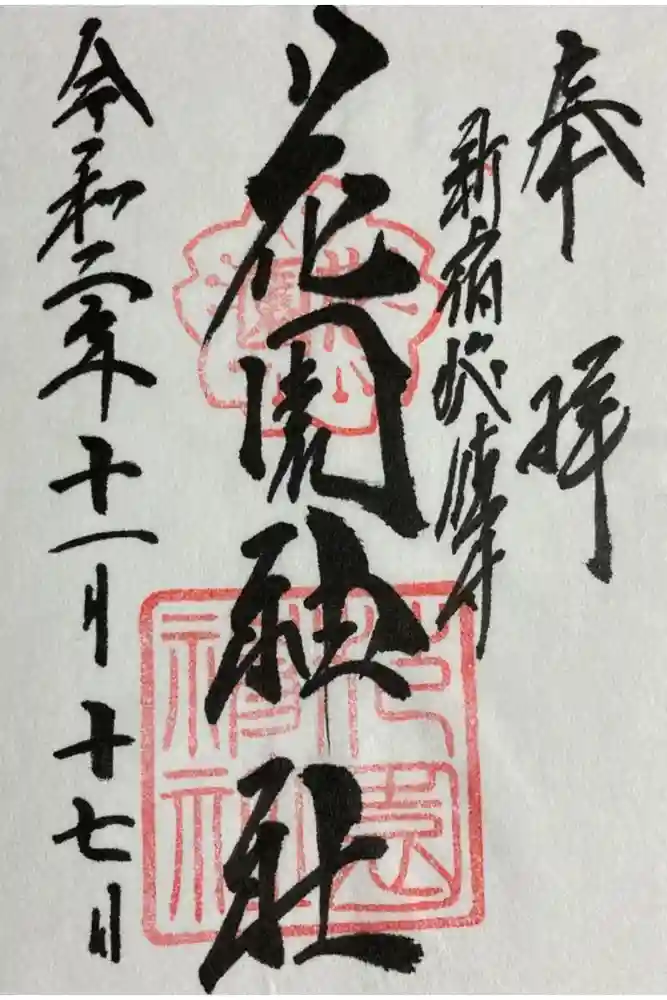 奉拝
新宿総鎮守
花園神社
令和二年十一月十七日
花園神社